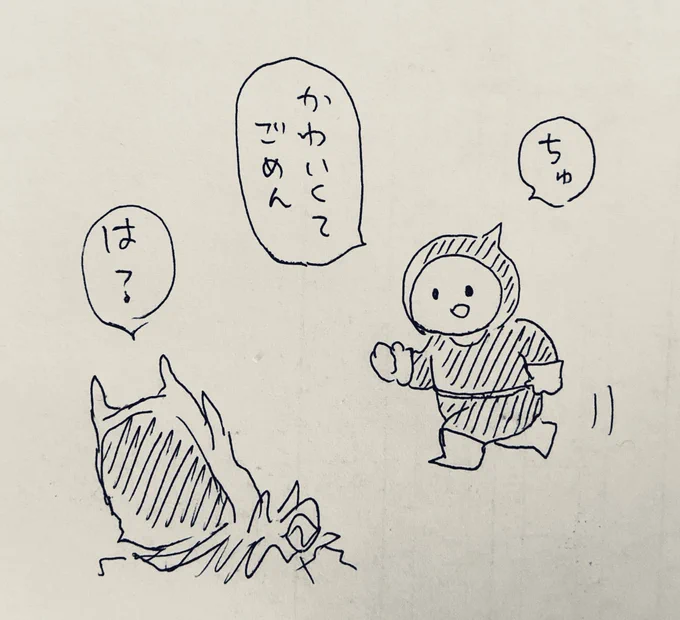 ちゅ
かわいくて
ごめん
は?